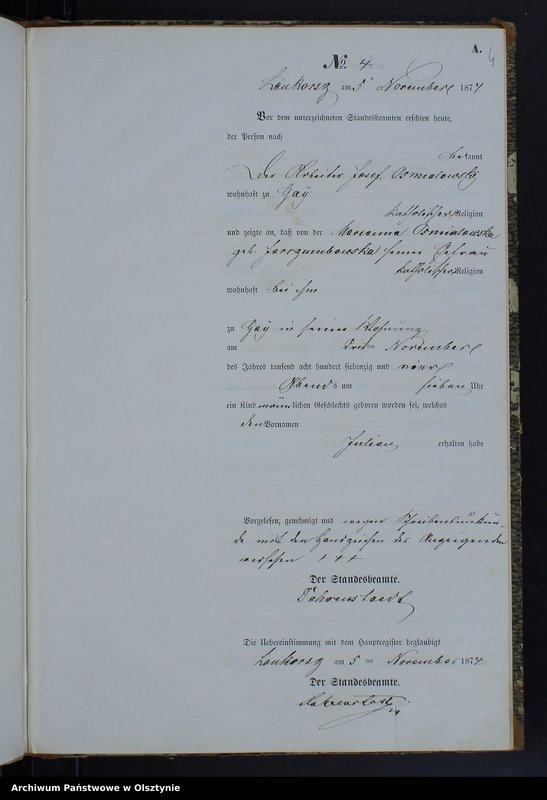 A.
4
№ 4
Lonkorsz am 5ten November 1874
Vor dem unterzeichneten Standesbeamten erschien heute,
der Person nach
bekannt
Der Arbeiter Josef Osmialowsky
wohnhaft zu Gay
katholischer Religion
und zeigte an, daß von der Marianna Osmialowska
geb. seiner Ehefrau
katholischer Religion
wohnhaft bei ihm
zu Gay in seiner Wohnung
am November
des Jahres tausend acht hundert siebenzig und vier
Abends um sieben Uhr
ein Kind männlichen Geschlechts geboren worden sei, welches
den Vornamen
Julian erhalten habe
Vorgelesen, genehmigt und wegen Schreibensunkun
de mit den Handzeichen des Anzeigenden
versehen + + +
Der Standesbeamte.
Die Uebereinstimmung mit dem Hauptregister beglaubigt
Lonkorsz am 5 ten November 1874
Der Standesbeamte.
Archiwum Państwowe w Olsztynie